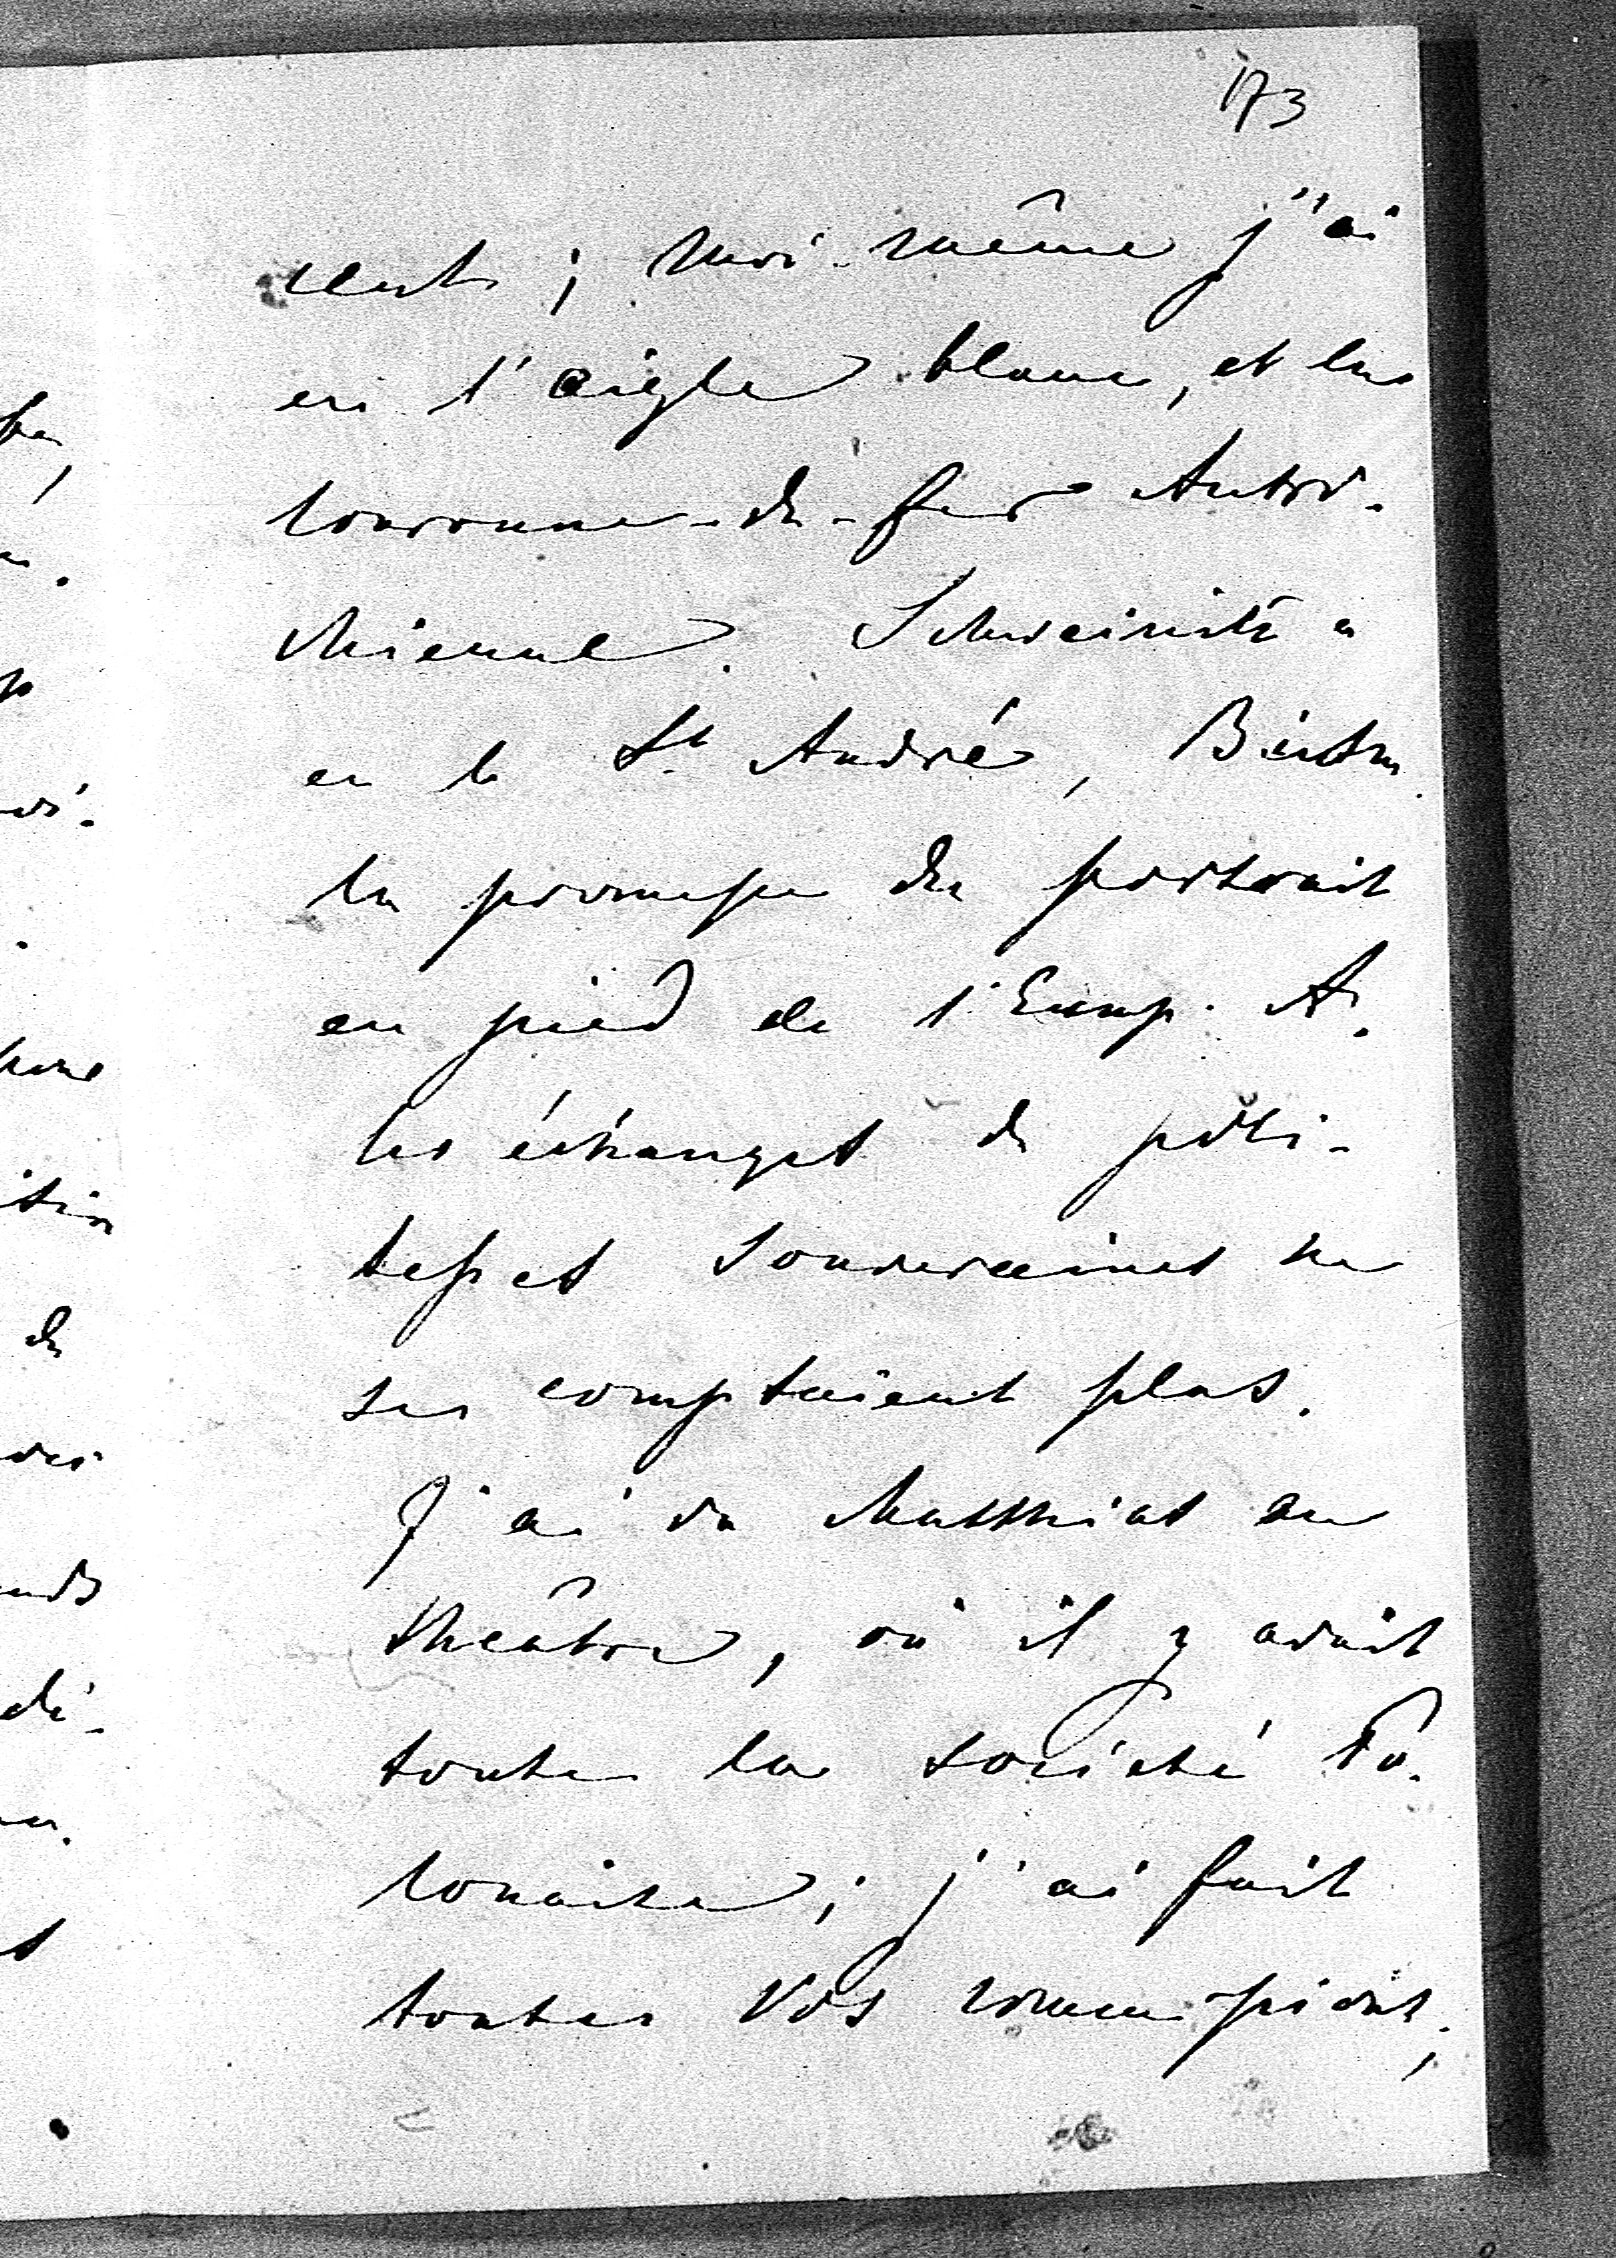 173
; moi-même j'ai
eu l'aigle blanc, et la
couronne-de-fer Autri-
chienne. Schweinitz a
eu le St. André,
la promesse du portrait
en pied de l'Emp. A.
les échanges de poli-
tesses souveraines ne
se comptaient plus.
J'ai vu Matthias au
théâtre, où il y avait
toute la société Po-
lonaise; j'ai fait
toutes vos commissions;